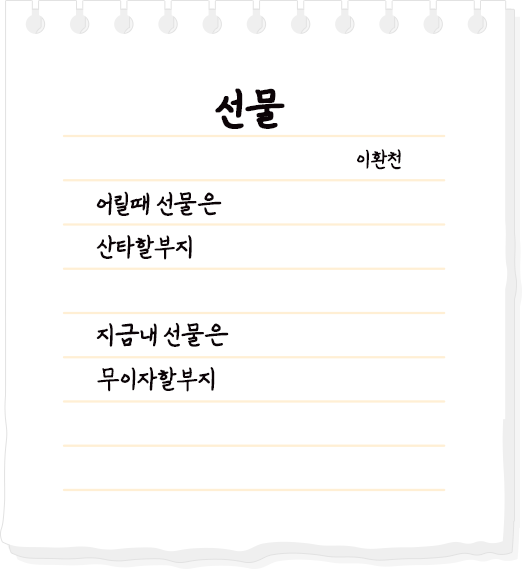 선물
이환천
어릴때 선물은
산타할부지
지금내 선물은
무이자할부지